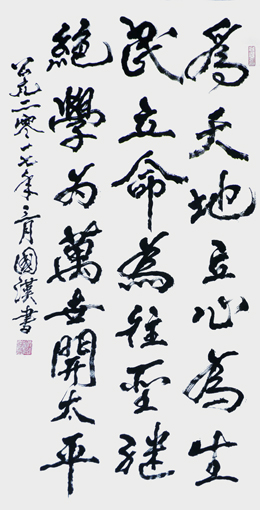 為天地立心為生
民立命為往聖継
絕學为萬世開太平
公元二零一七年三月國漢書